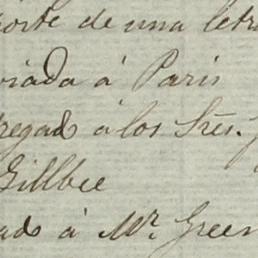 porte de una letra
viada á Paris
regad á los Srēs.
Gillbee
ad á Mr. Green